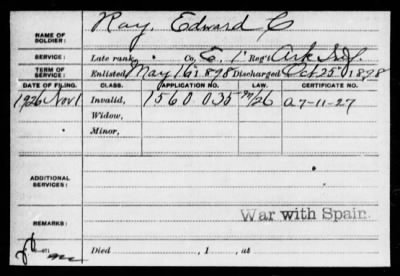 NAME OF SOLDIER: Ray, Edward C
SERVICE: Late rank, Co. E. 1 Reg't Ark Inf.
TERM OF SERVICE: Enlisted May 16 1898 Discharged Oct 25 1898
DATE OF FILING. CLASS. APPLICATION NO. LAW. CERTIFICATE NO.
1926 Nov 1 Invalid, 1560 035 a 7-11-27
Widow,
Minor,
ADDITIONAL SERVICES:
War with Spain.
REMARKS:
Died , 1 , at